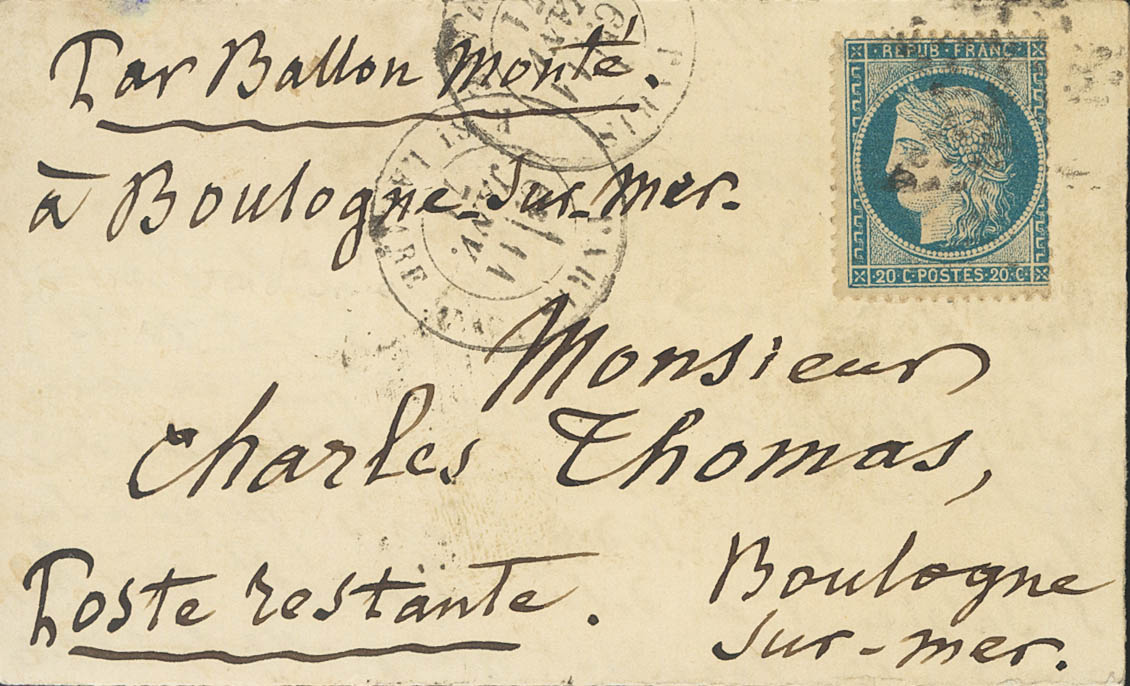 Par Ballon Monté.
à Boulogne-Sur-Mer.
REPUB·FRANC
20·C·POSTES·20·C
PARIS
JANV
Monsieur
Charles Thomas,
Poste restante.
Boulogne
Sur-mer.